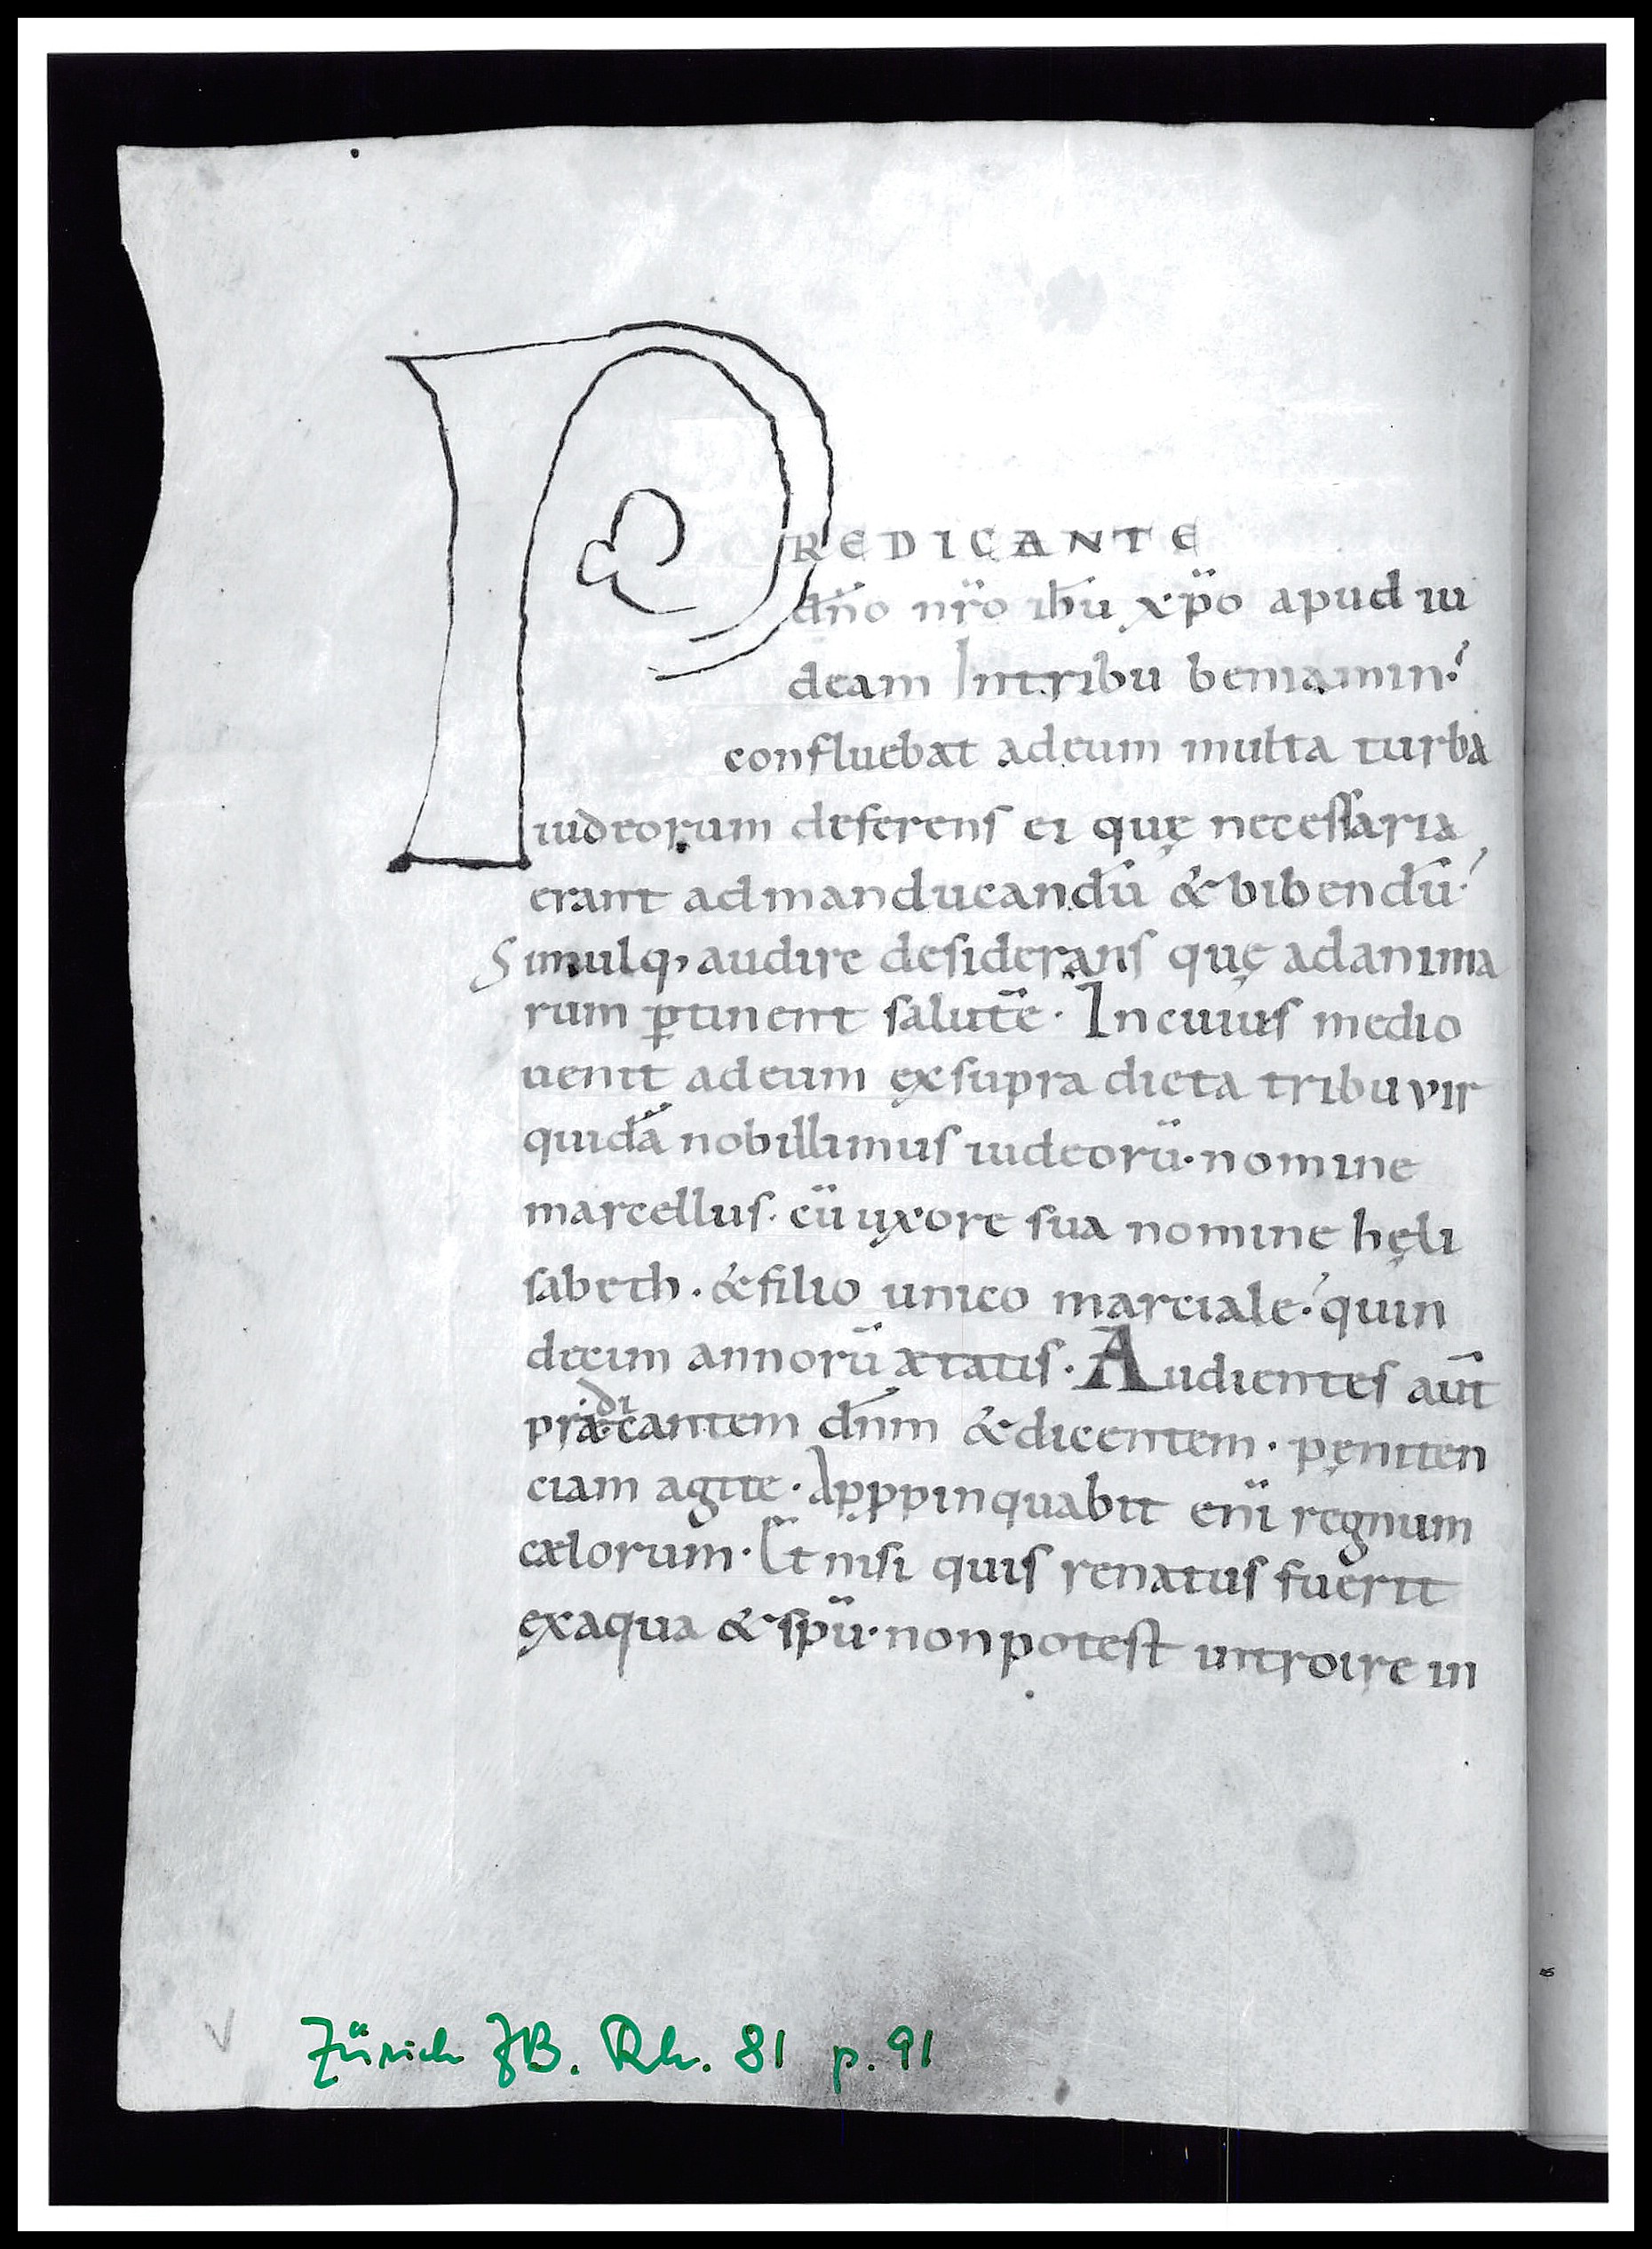 PREDICANTE
dn̄o nr̄o ihū xp̄o apud iu
deam Intribu beniamin.
confluebat adeum multa turba
iudeorum deferens ei quę necessaria
erant admanducandū & bibendū.
Simulq, audire desiderans quę adanima
rum ꝑtinent salutē. Incuius medio
uenit adeum exsupra dicta tribu vir
quidā nobillimus iudeorū. nomine
marcellus. cū uxore sua nomine hęli
sabeth. & filio unico marciale. quin
decim annorū ætatis. Audientes aut̄
prædicantem dn̄m & dicentem. pęniten
ciam agite. Apꝓpinquabit enī regnum
cælorum. Et nisi quis renatus fuerit
exaqua & spū. nonpotest introire in
Zürich ZB. Rh. 81 p. 91